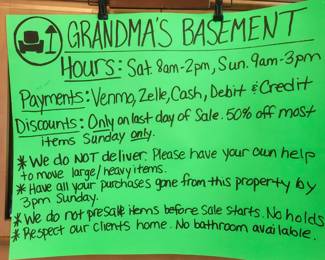 GRANDMA'S BASEMENT
Hours: Sat. 8am-2pm, Sun. 9am-3pm
Payments: Venmo, Zelle, Cash, Debit & Credit
Discounts: Only on last day of Sale. 50% off most
items Sunday only.
* We do NOT deliver. Please have your own help
to move large/heavy items.
* Have all your purchases gone from this property by
3pm Sunday.
* We do not presale items before sale starts. No holds
* Respect our clients home. No bathroom available.